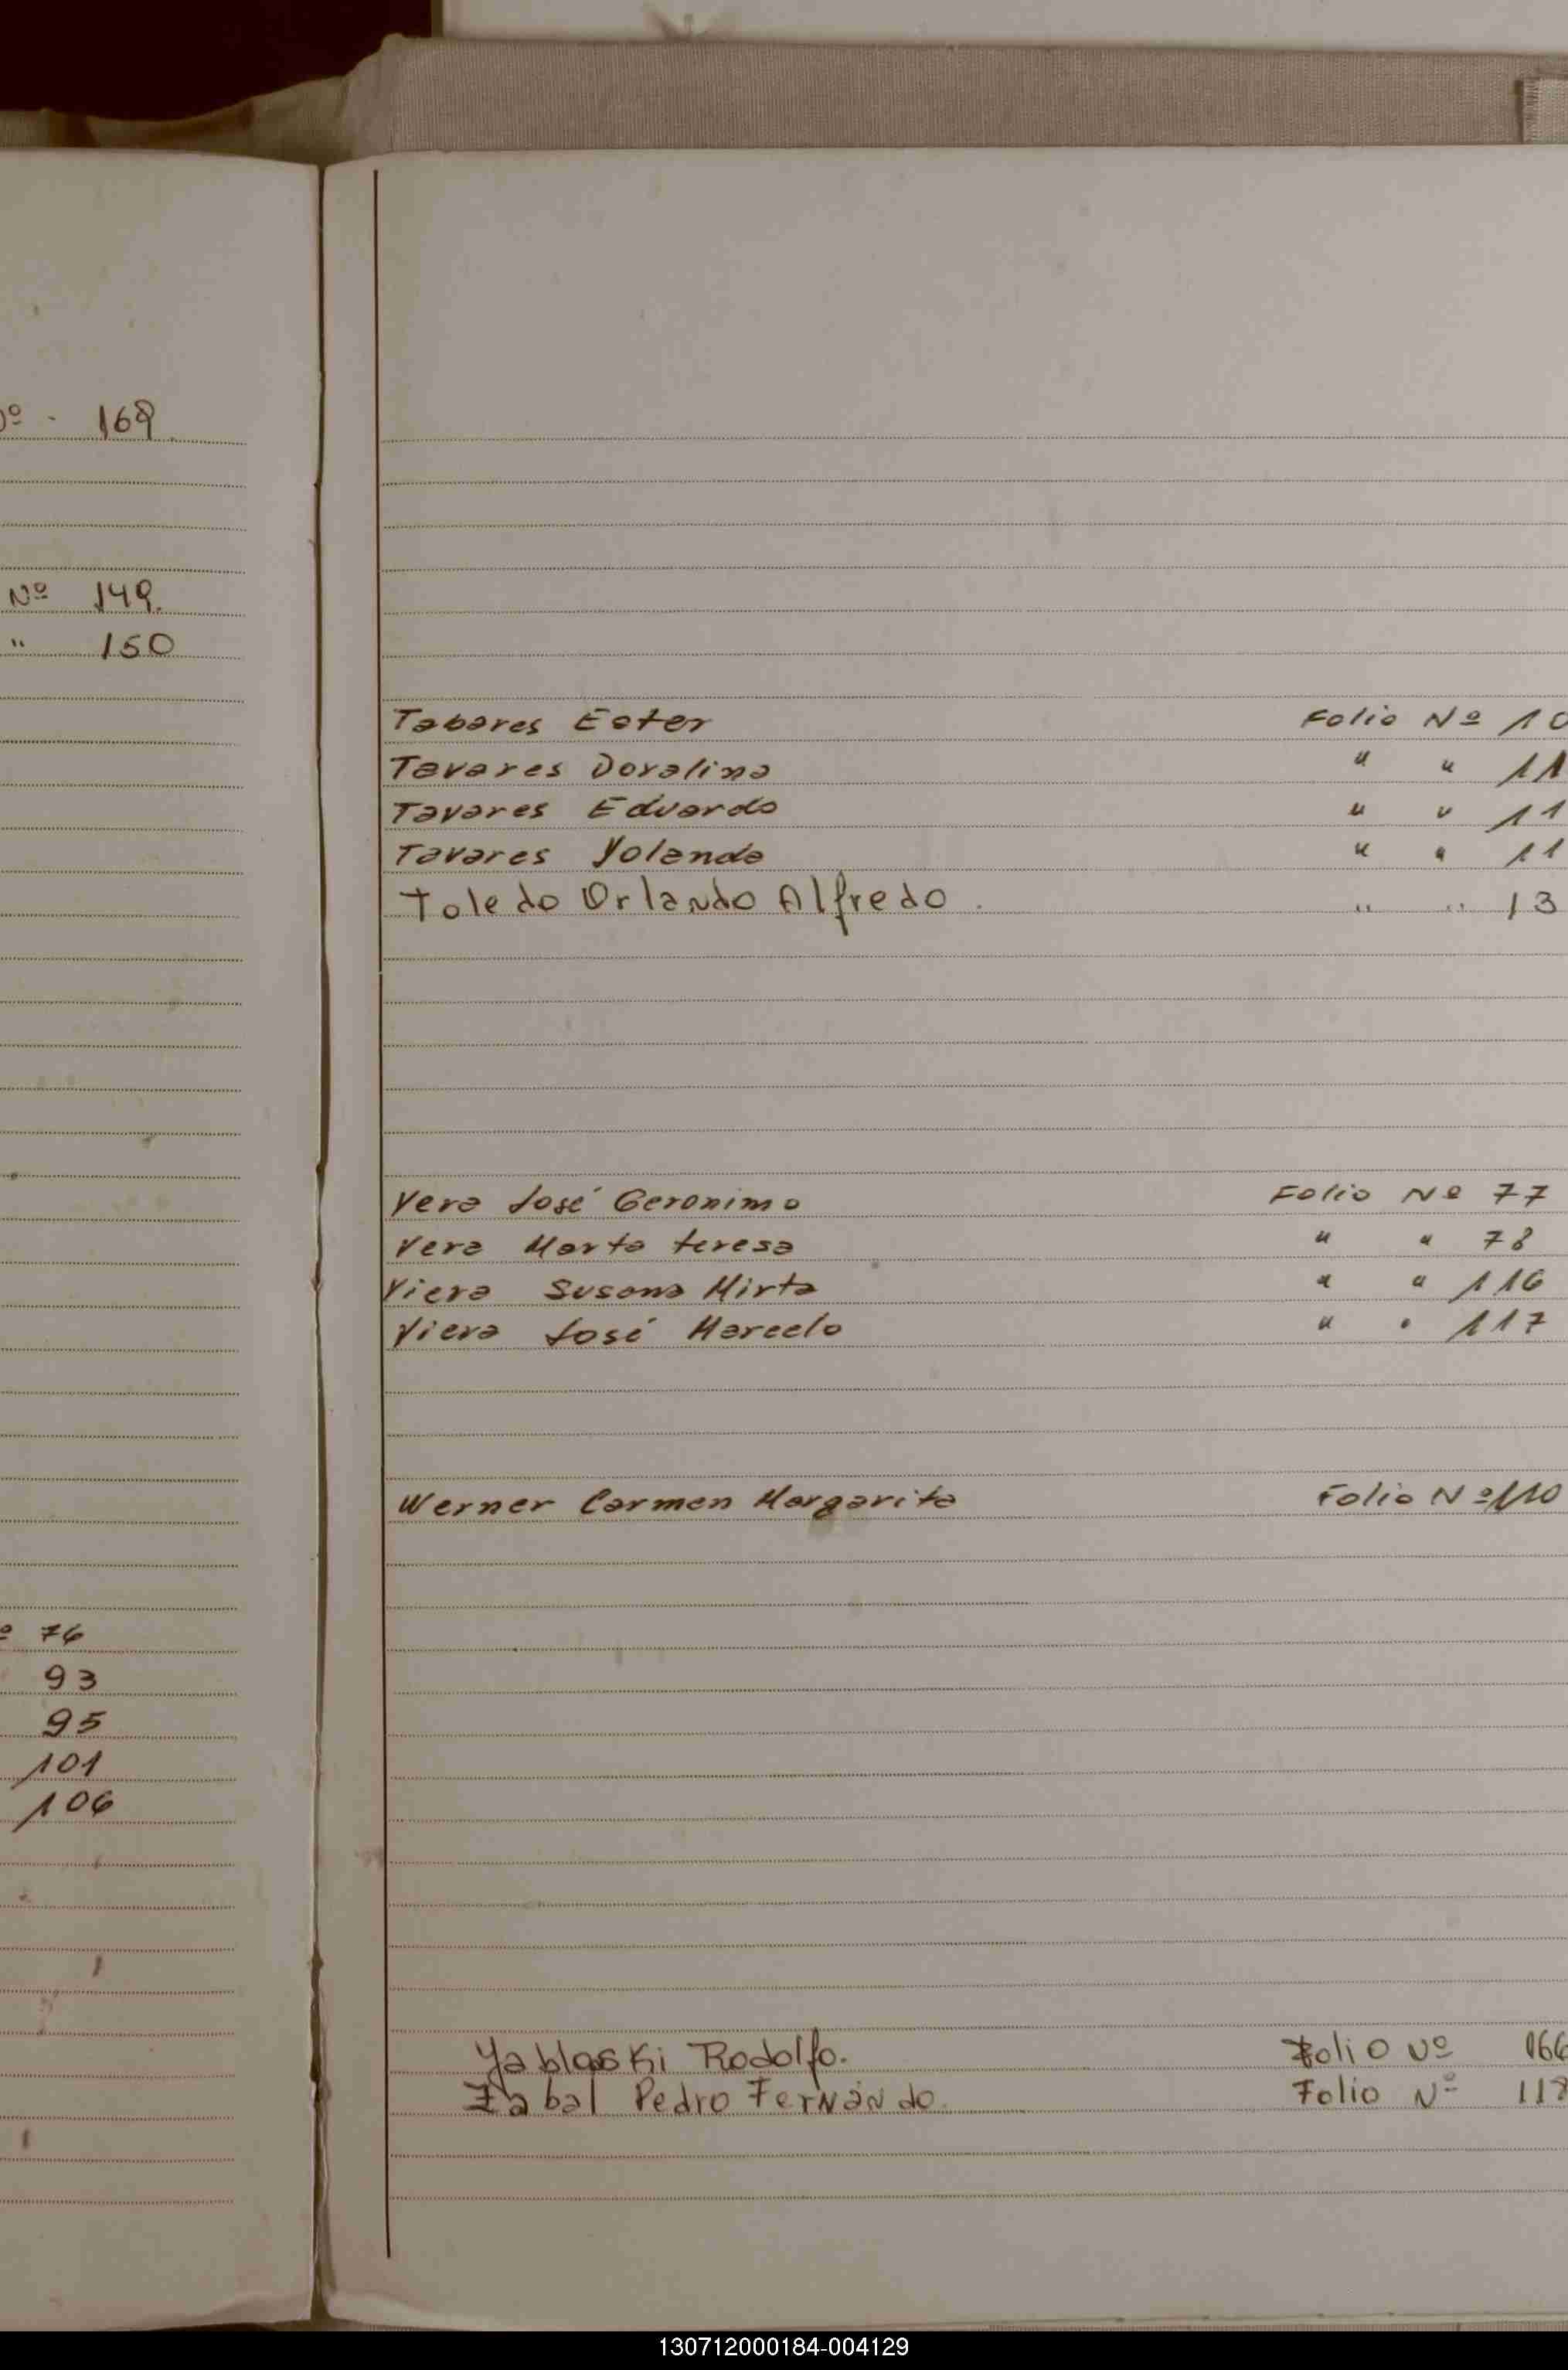 Nº - 169
Nº 149.
" 150
76
93
95
101
106
Tabares Ester Folio Nº 10
Tavares Doralina " " 11
Tavares Eduardo " " 11
Tavares Yolanda " " 11
Toledo Orlando Alfredo. " " 13
Vera José Geronimo Folio Nº 77
Vera Marta teresa " " 78
Viera Susana Mirta " " 116
Viera José Marcelo " " 117
Werner Carmen Margarita Folio Nº 110
Yablaski Rodolfo. Folio Nº 166
Zabal Pedro Fernándo. Folio Nº 118
130712000184-004129